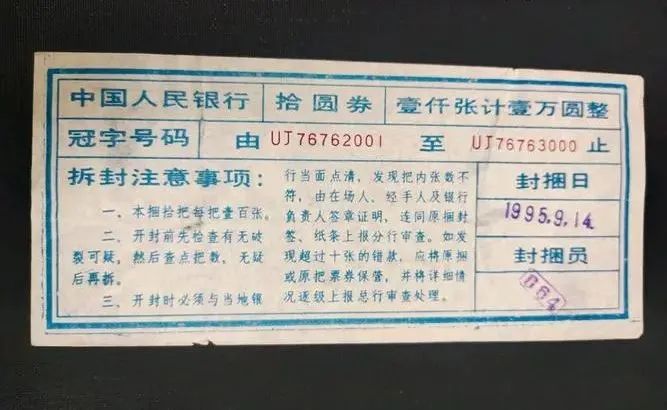 中国人民银行 拾圆券 壹仟张计壹万圆整
冠字号码 由 UJ76762001 至 UJ76763000 止
拆封注意事项：
一、本捆拾把每把壹百张。
二、开封前先检查有无破
裂可疑，然后查点把数，无疑
后再拆。
三、开封时必须与当地银
行当面点清，发现把内张数不
符，由在场人、经手人及银行
负责人签章证明，连同原捆封
签、纸条上报分行审查。如发
现超过十张的错款，应将原捆
或原把票券保管，并将详细情
况逐级上报总行审查处理。
封捆日
1995.9.14
封捆员
064